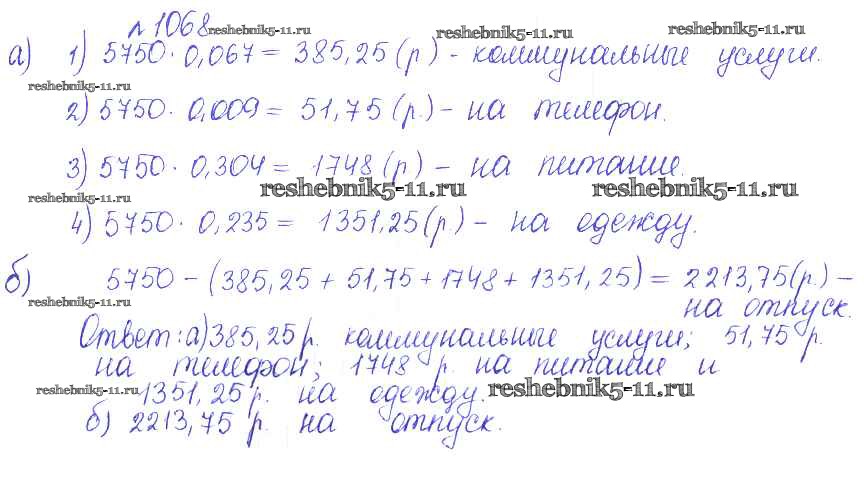 № 1068 reshebnik5-11.ru reshebnik5-11.ru reshebnik5-11.ru
а) 1) 5750 · 0,067 = 385,25 (р) - коммунальные услуги.
reshebnik5-11.ru
2) 5750 · 0,009 = 51,75 (р.) - на телефон.
3) 5750 · 0,304 = 1748 (р) - на питание.
reshebnik5-11.ru reshebnik5-11.ru reshebnik5-11.ru
4) 5750 · 0,235 = 1351,25 (р.) - на одежду.
б) 5750 - (385,25 + 51,75 + 1748 + 1351,25) = 2213,75 (р.) -
reshebnik5-11.ru
на отпуск.
Ответ: а) 385,25 р. коммунальные услуги; 51,75 р.
на телефон; 1748 р. на питание и
reshebnik5-11.ru 1351,25 р. на одежду. reshebnik5-11.ru
б) 2213,75 р. на отпуск.